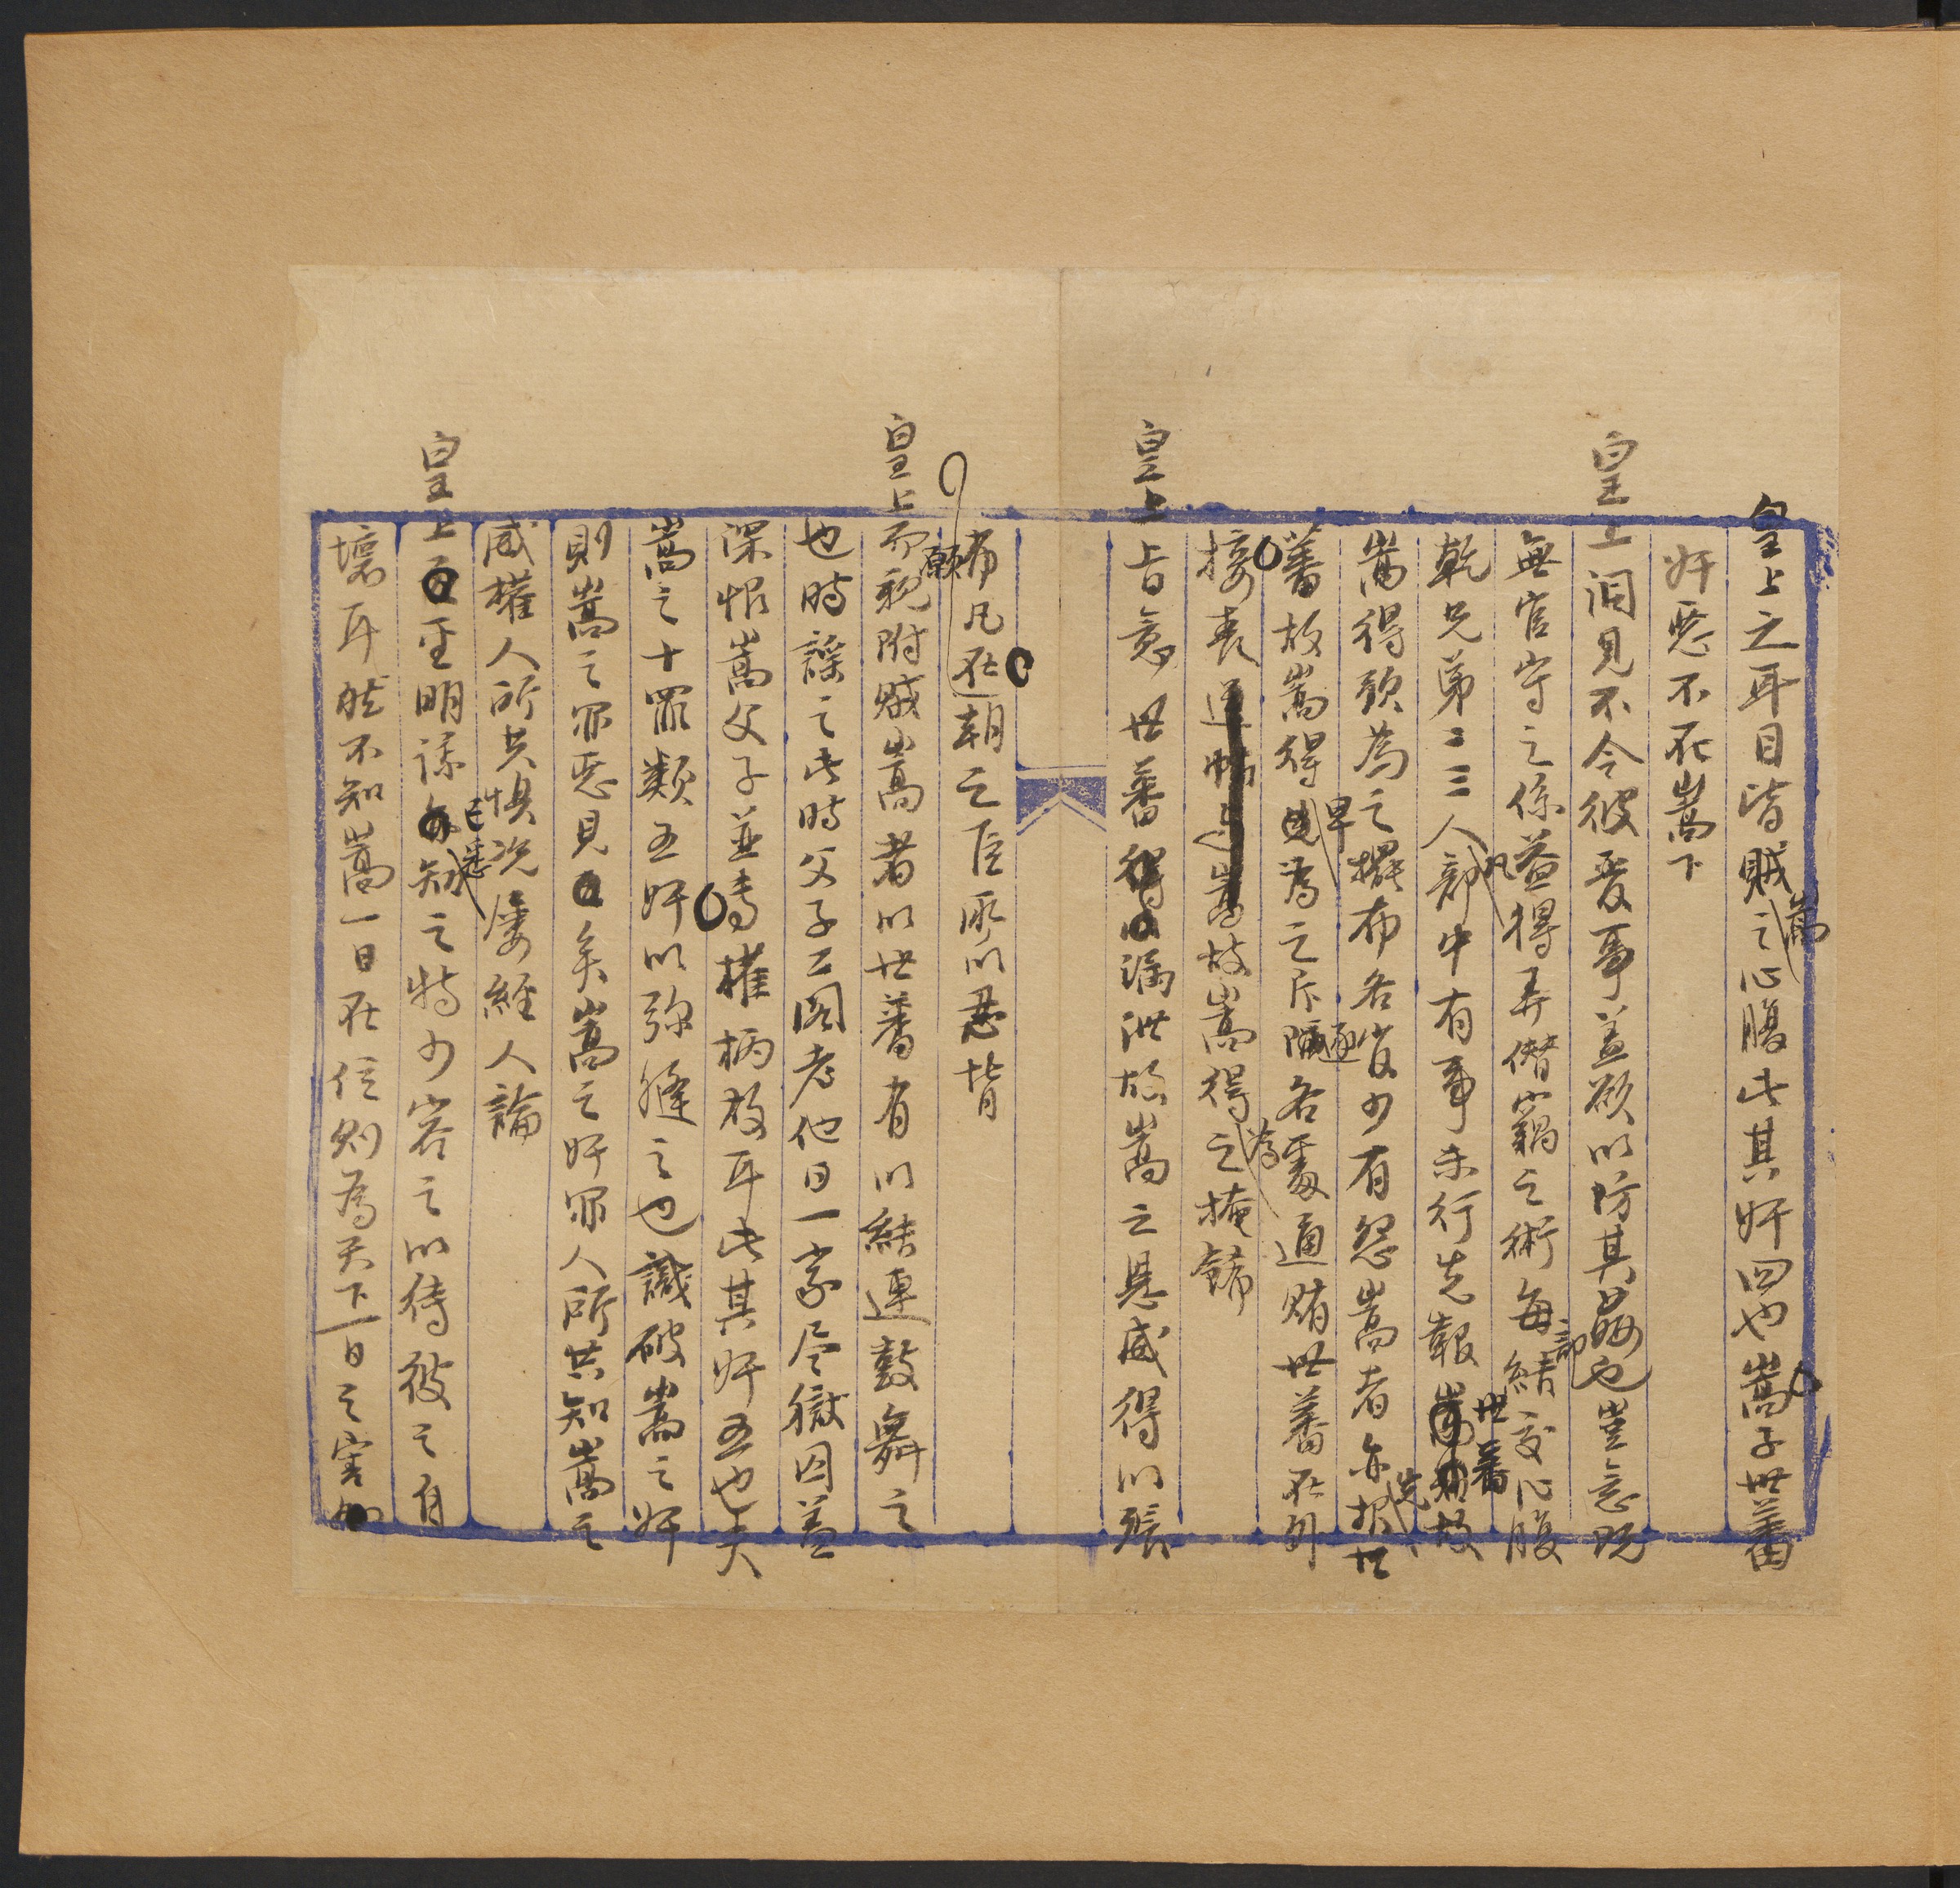 皇上之耳目皆賊嵩之心腹此其奸四也嵩子世蕃
奸惡不在嵩下
皇上洞見不令彼受事蓋欲以防其姦也豈意既
無官守之係益得弄僭竊之術每部結交心腹
乾兄弟二三人凡部中有事未行先報世蕃故
嵩得預為之擺布各官少有怨嵩者亦先報世
蕃故嵩得早為之斥逐各處通賄世蕃在外
接喪 嵩故嵩得為之掩飾
皇上旨意世蕃得漏泄故嵩之恩威得以張
布凡在朝之臣所以忍皆
皇上而願親附賊嵩者以世蕃有以結連鼓舞之
也時謠之此時父子二閣老他日一家盡獄囚蓋
深恨嵩父子並專權柄故耳此其奸五也夫
嵩之十罪類五奸以彌縫之也識破嵩之奸
則嵩之罪惡見矣嵩之奸罪人所共知嵩之
威權人所共懼況屢經人論
皇上至明諒已悉知之特少容之以待彼之自
壞耳然不知嵩一日在位則為天下一日之害